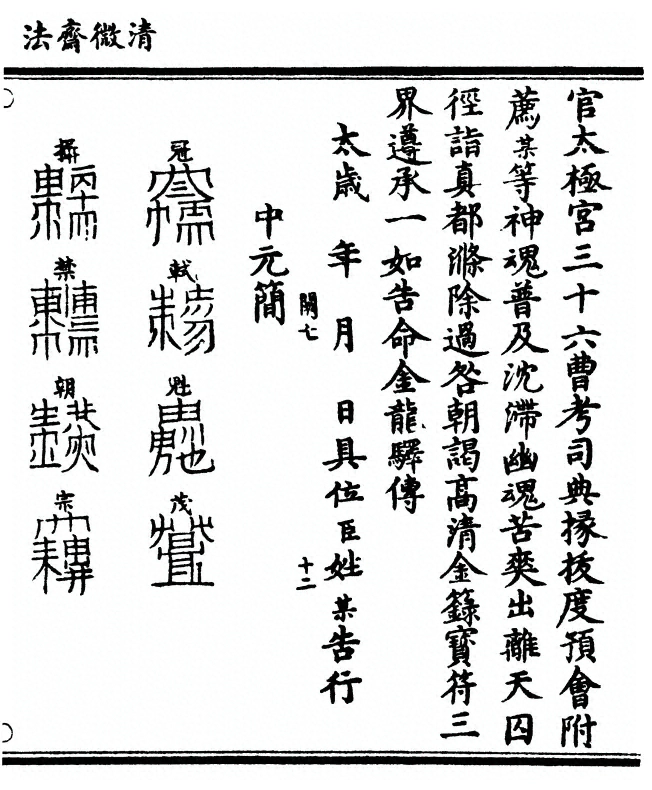 清微齋法
官太極宮三十六曹考司典掾拔度預會附
薦某等神魂普及沈滯幽魂苦爽出離天囚
徑詣真都滌除過咎朝謁高清金籙寶符三
界遵承一如告命金龍驛傳
太歲 年 月 日具位臣姓某告行
十二
闕七
中元簡
冠
軾
魁
茂
攝
禁
朝
宗